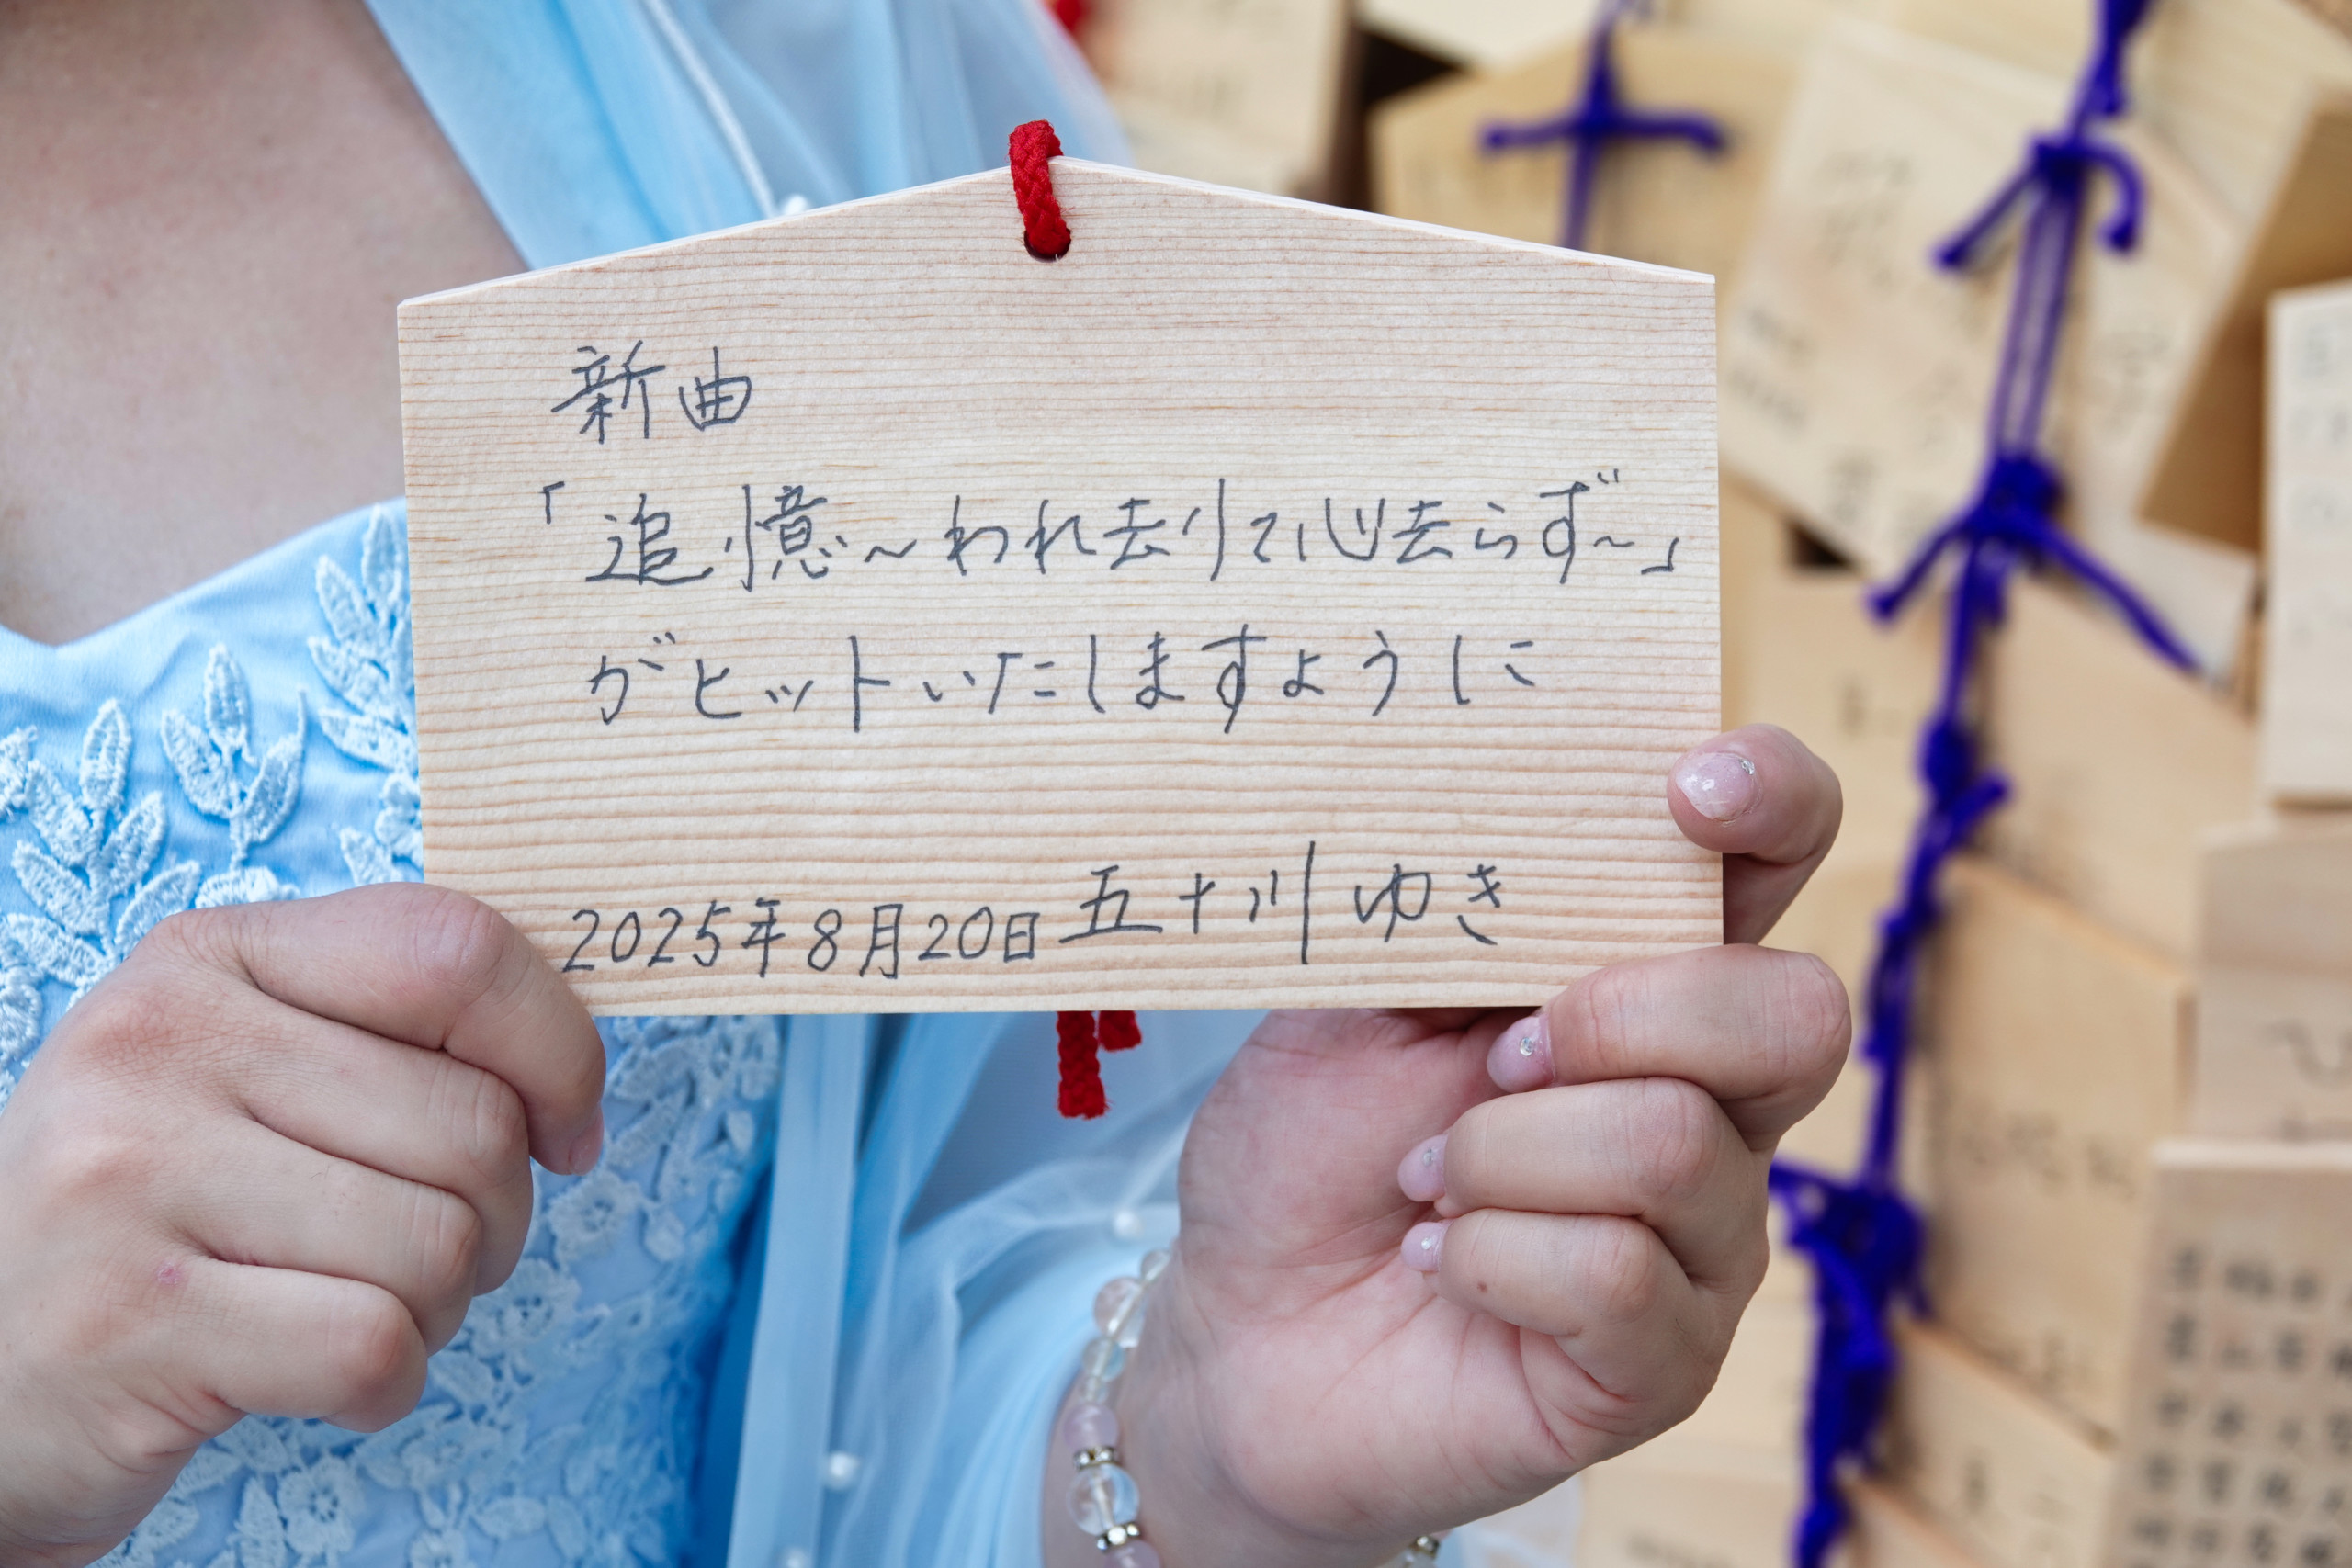 新曲
「追憶～われ去りて心去らず～」
がヒットいたしますように
2025年8月20日 五十川ゆき